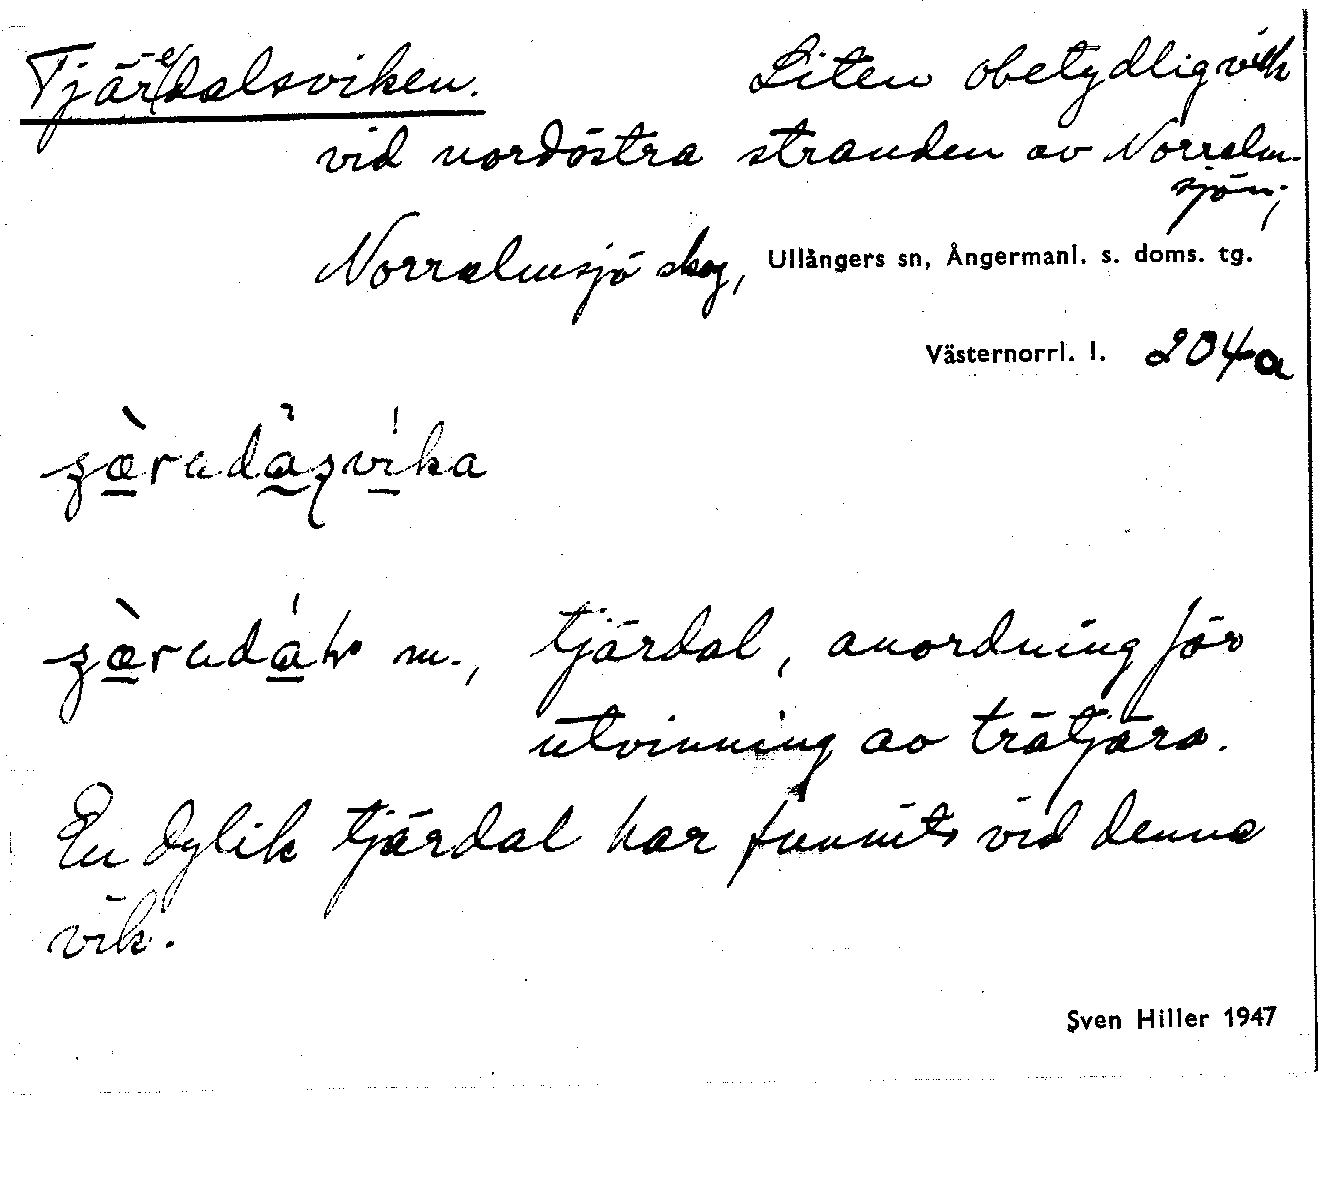 Tjär(e)dalsviken. Liten obetydlig vik
vid nordöstra stranden av Norralm-
sjön;
Norralmsjö skog, Ullångers sn, Ångermanl. s. doms. tg.
Västernorrl. l. 204a
m., tjärdal, anordning för
utvinning av trätjära.
En dylik tjärdal har funnits vid denna
vik.
Sven Hiller 1947